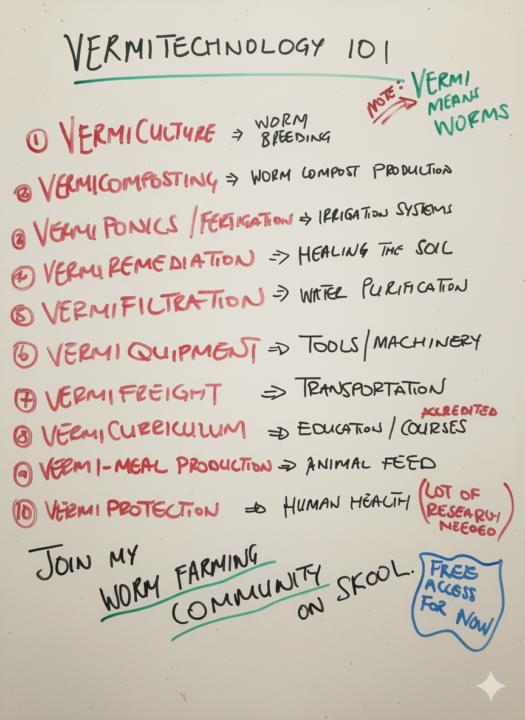 VERMITECHNOLOGY 101
NOTE: VERMI
MEANS
WORMS
① VERMICULTURE ⇒ WORM
BREEDING
② VERMICOMPOSTING ⇒ WORM COMPOST PRODUCTION
③ VERMIPONICS / FERTIGATION ⇒ IRRIGATION SYSTEMS
④ VERMIREMEDIATION ⇒ HEALING THE SOIL
⑤ VERMIFILTRATION ⇒ WATER PURIFICATION
⑥ VERMIQUIPMENT ⇒ TOOLS/MACHINERY
⑦ VERMIFREIGHT ⇒ TRANSPORTATION
⑧ VERMICURRICULUM ⇒ EDUCATION / ACCREDITED COURSES
⑨ VERMI-MEAL PRODUCTION ⇒ ANIMAL FEED
⑩ VERMIPROTECTION ⇒ HUMAN HEALTH (LOT OF
RESEARCH
NEEDED)
JOIN MY
WORM FARMING
COMMUNITY
ON SKOOL.
FREE
ACCESS
FOR NOW